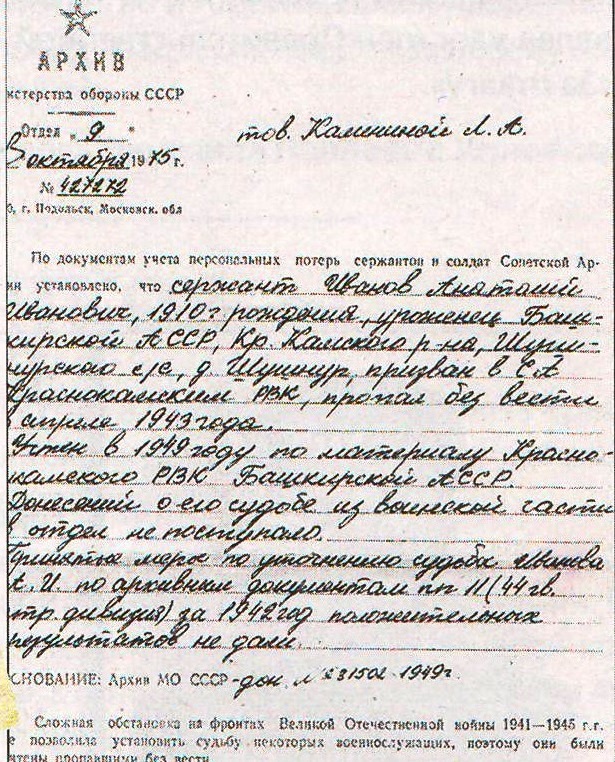 АРХИВ
истерства обороны СССР
Отдел „ 9 "
5 октября 1975 г.
№ 427272
0, г. Подольск, Московск. обл
тов. Калининой Л. А.
По документам учета персональных потерь сержантов и солдат Советской Ар-
ии установлено, что сержант Иванов Анатолий
Иванович, 1910 г рождения, уроженец Баш-
кирской АССР, Кр. Камского р-на, Шушн-
урского с/с, д. Шушнур, призван в СА
Краснокамским РВК, пропал без вести
апреле 1943 года.
Учтен в 1949 году по материалу Красно-
камского РВК Башкирской АССР.
Донесений о его судьбе из воинской части
в отдел не поступало.
Принятые меры по уточнению судьбы Иванова
А. И. по архивным документам пп 11 (44 гв.
стр дивизия) за 1942 год положительных
результатов не дали.
СНОВАНИЕ: Архив МО СССР - дон. № 81502 - 1949 г
Сложная обстановка на фронтах Великой Отечественной войны 1941—1945 г.г.
е позволила установить судьбу некоторых военнослужащих, поэтому они были
чтены пропавшими без вести